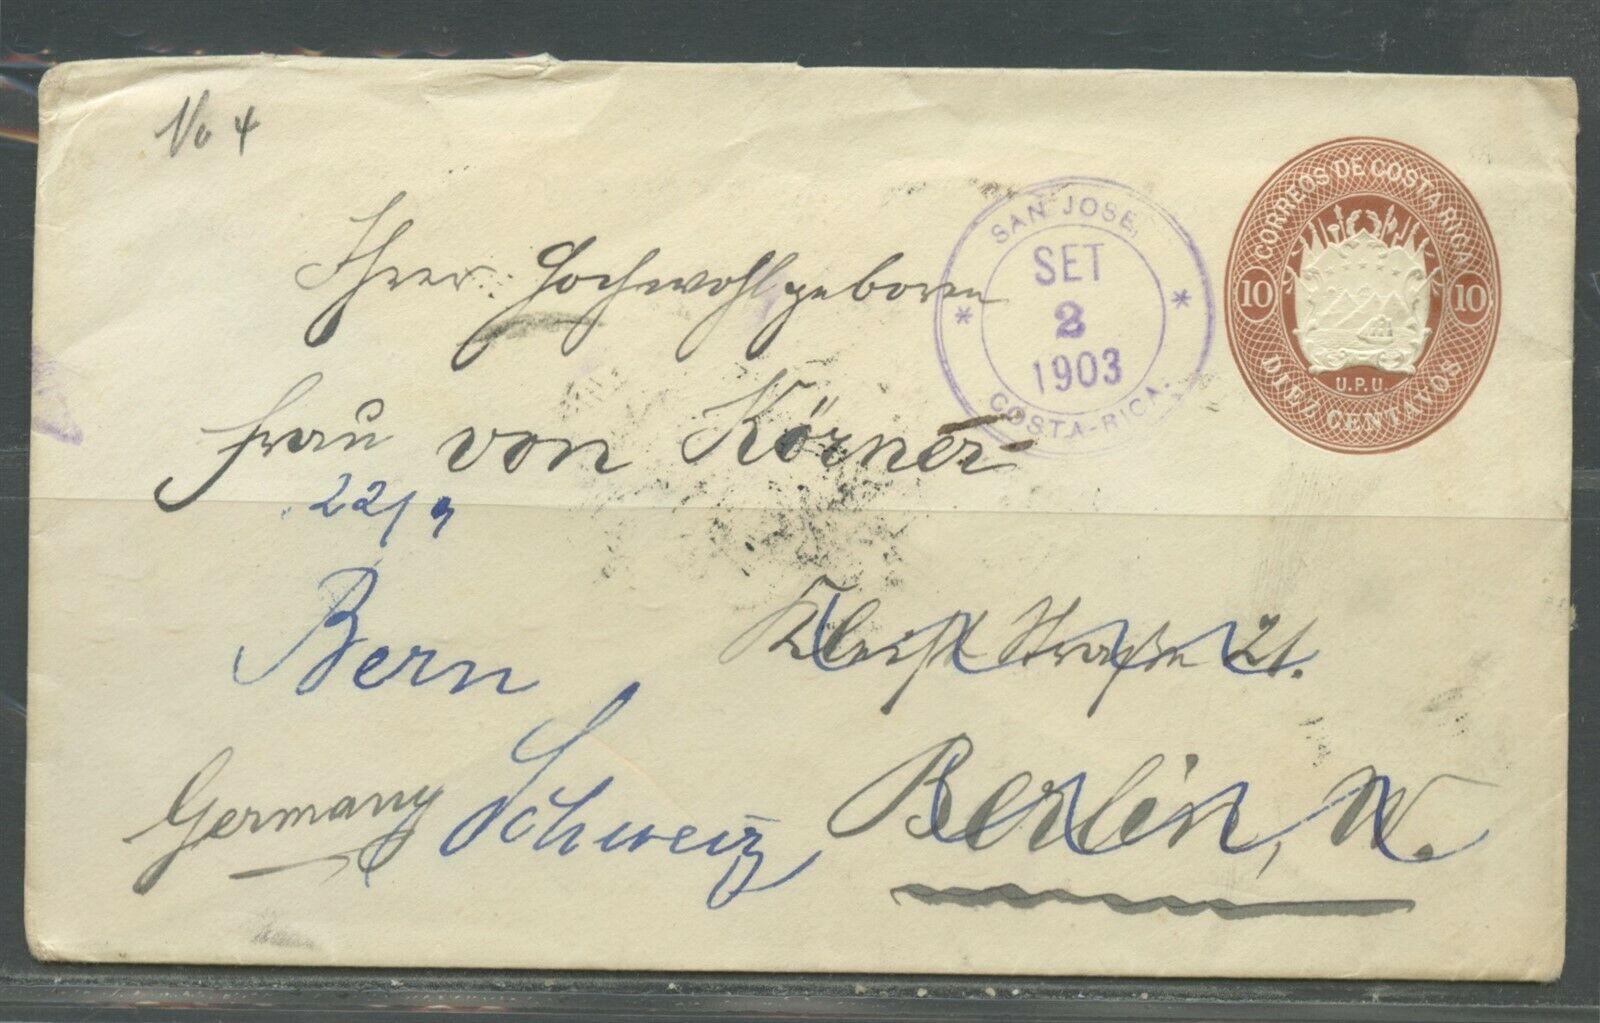 No 4
CORREOS DE COSTA RICA
10 10
U.P.U.
DIEZ CENTAVOS
SAN JOSE,
SET
2
1903
* *
COSTA-RICA.
Ihrer Hochwohlgeboren
Frau von Körner
22/9
Bern
Kleist Straße 21.
Germany Schweiz
Berlin, W.